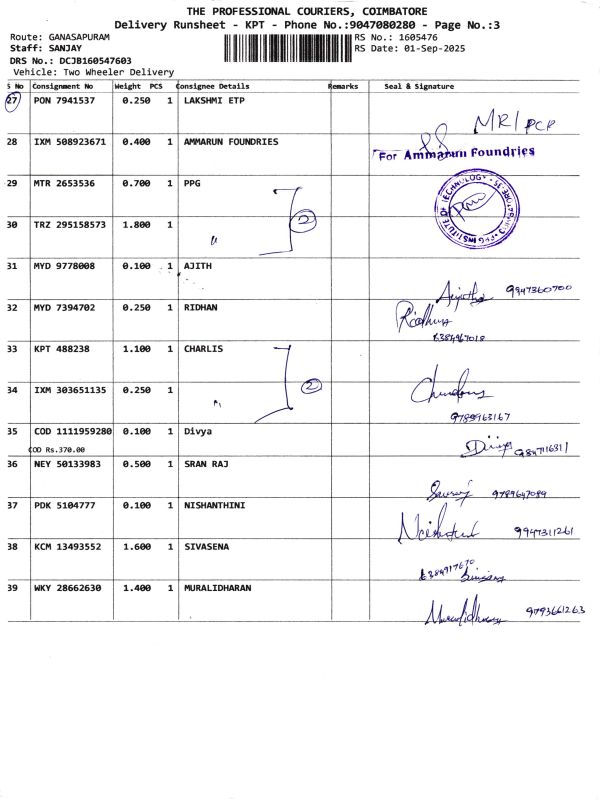 THE PROFESSIONAL COURIERS, COIMBATORE
Delivery Runsheet - KPT - Phone No.:9047080280 - Page No.:3
Route: GANASAPURAM
RS No.: 1605476
Staff: SANJAY
RS Date: 01-Sep-2025
DRS No.: DCJB160547603
Vehicle: Two Wheeler Delivery
S No Consignment No Weight PCS Consignee Details Remarks Seal & Signature
27 PON 7941537 0.250 1 LAKSHMI ETP
MR/PCP
28 IXM 508923671 0.400 1 AMMARUN FOUNDRIES
For Ammarun Foundries
29 MTR 2653536 0.700 1 PPG
2
30 TRZ 295158573 1.800 1 "
31 MYD 9778008 0.100 1 AJITH
9947360700
32 MYD 7394702 0.250 1 RIDHAN
Ridhan
8384967018
33 KPT 488238 1.100 1 CHARLIS
2
34 IXM 303651135 0.250 1 "
9789963167
35 COD 1111959280 0.100 1 Divya
COD Rs.370.00
Divya
36 NEY 50133983 0.500 1 SRAN RAJ
9789647089
37 PDK 5104777 0.100 1 NISHANTHINI
9947311261
38 KCM 13493552 1.600 1 SIVASENA
8384917670
39 WKY 28662630 1.400 1 MURALIDHARAN
Muralidharan 9793661263